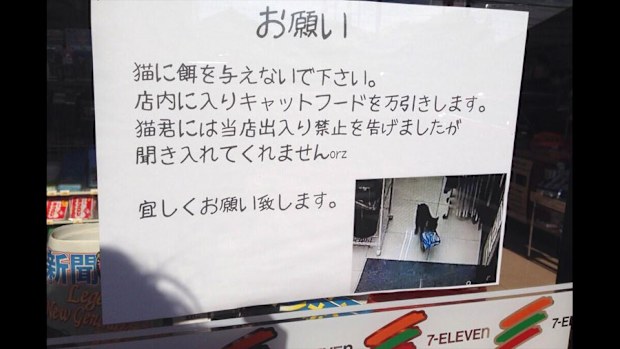 お願い
猫に餌を与えないで下さい。
店内に入りキャットフードを万引きします。
猫君には当店出入り禁止を告げましたが
聞き入れてくれませんorz
宜しくお願い致します。
新聞
7-ELEVEn
7-E